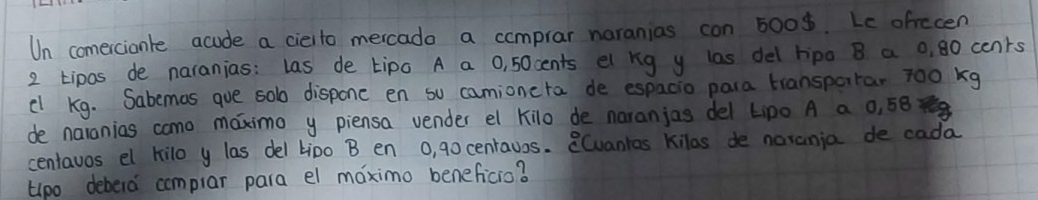 Un comerciante acude a cierto mercado a comprar naranjas con 500$. Le ofrecen
2 tipos de naranjas: las de tipo A a 0,50 cents el kg y las del tipo B a 0,80 cents
el kg. Sabemos que solo dispone en su camioneta de espacio para transportar 700 kg
de naranjas como máximo y piensa vender el kilo de naranjas del tipo A a 0,58
centavos el kilo y las del tipo B en 0,90 centavos. ¿Cuantos kilos de naranja de cada
tipo deberá comprar para el máximo beneficio?